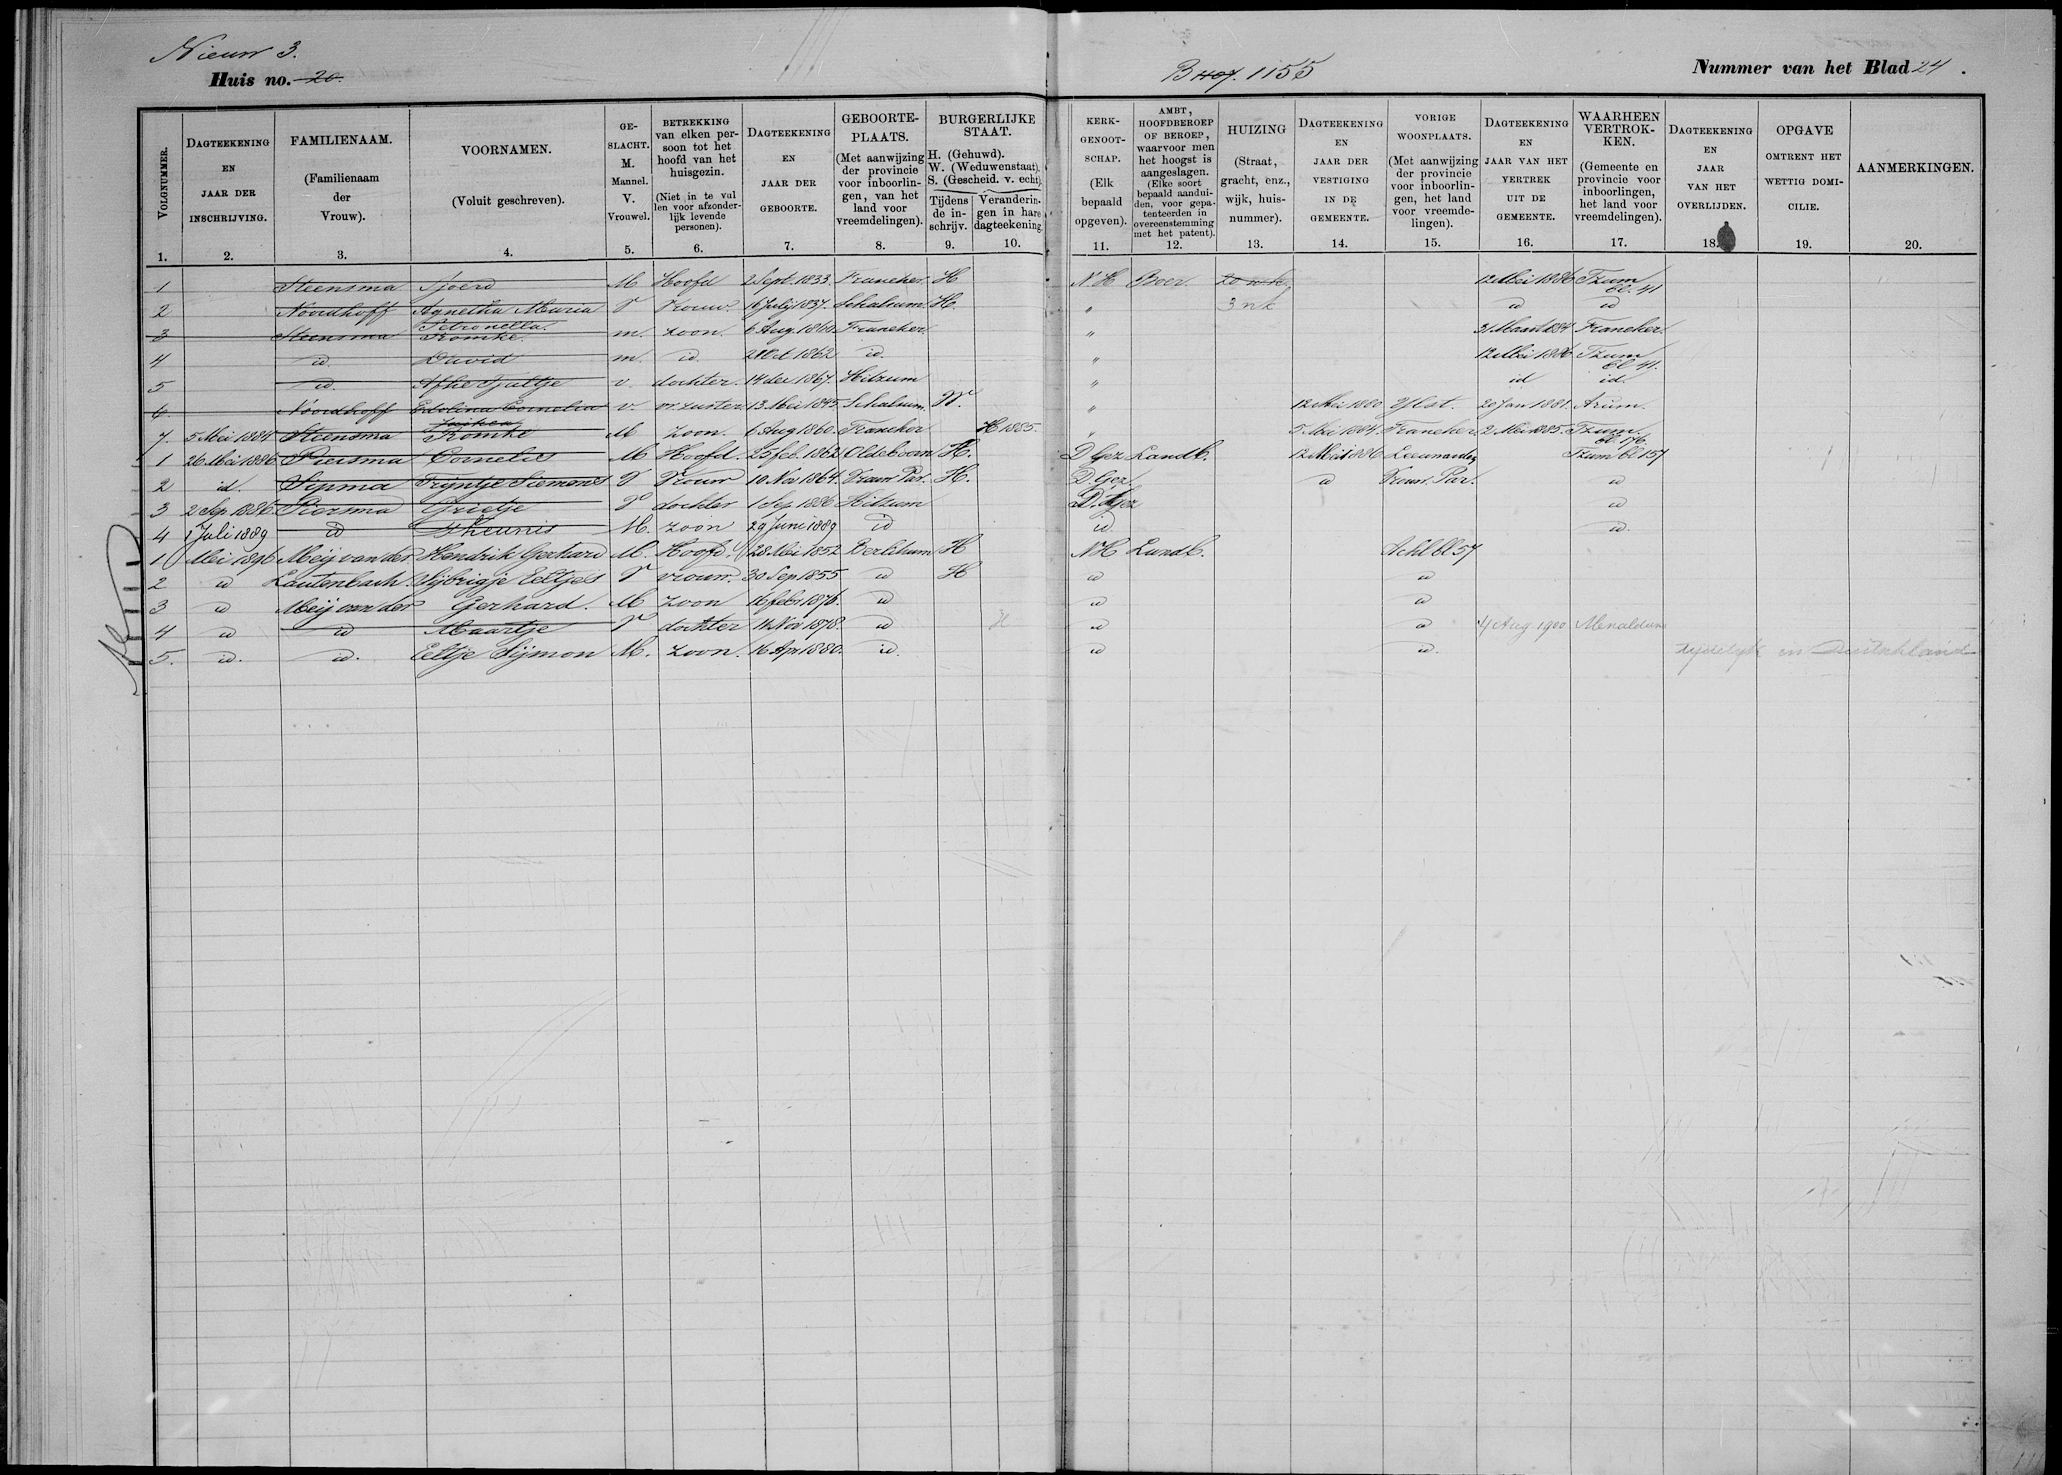 Nieuw 3.
Huis no. 20.
B 1107. 1155
Nummer van het Blad 24.
VOLGNUMMER. 1.
DAGTEEKENING EN JAAR DER INSCHRIJVING. 2.
FAMILIENAAM. (Familienaam der Vrouw). 3.
VOORNAMEN. (Voluit geschreven). 4.
GE-SLACHT. M. Mannel. V. Vrouwel. 5.
BETREKKING van elken per-soon tot het hoofd van het huisgezin. (Niet in te vul len voor afzonder-lijk levende personen). 6.
DAGTEEKENING EN JAAR DER GEBOORTE. 7.
GEBOORTE-PLAATS. (Met aanwijzing der provincie voor inboorlin-gen, van het land voor vreemdelingen). 8.
BURGERLIJKE STAAT. H. (Gehuwd). W. (Weduwenstaat). S. (Gescheid. v. echt).
Tijdens de in-schrijv. 9.
Veranderin-gen in hare dagteekening. 10.
KERK-GENOOT-SCHAP. (Elk bepaald opgeven). 11.
AMBT, HOOFDBEROEP OF BEROEP, waarvoor men het hoogst is aangeslagen. (Elke soort bepaald aandui-den, voor gepa-tenteerden in overeenstemming met het patent). 12.
HUIZING (Straat, gracht, enz., wijk, huis-nummer). 13.
DAGTEEKENING EN JAAR DER VESTIGING IN DE GEMEENTE. 14.
VORIGE WOONPLAATS. (Met aanwijzing der provincie voor inboorlin-gen, het land voor vreemde-lingen). 15.
DAGTEEKENING EN JAAR VAN HET VERTREK UIT DE GEMEENTE. 16.
WAARHEEN VERTROK-KEN. (Gemeente en provincie voor inboorlingen, het land voor vreemdelingen). 17.
DAGTEEKENING EN JAAR VAN HET OVERLIJDEN. 18.
OPGAVE OMTRENT HET WETTIG DOMI-CILIE. 19.
AANMERKINGEN. 20.
1 Steensma Sjoerd M Hoofd 2 Sept. 1833. Franeker. H N H Boer. 20 12 Mei 1886 Tzum bl. 41
2 Noordhoff Agnetha Maria Petronella. V Vrouw. 16 Julij 1837. Schalsum H. " 3 n k id id
3 Steensma Romke. m. zoon. 6 Aug. 1860. Franeker " 31 Maart 1884 Franeker
4 id. David m. id. 21 Oct 1862 id. " 12 Mei 1886 Tzum bl 41.
5 id. Afke Tjaltje v. dochter. 14 dec 1867. Hitzum " id id.
6. Noordhoff Edolina Cornelia v. vr zuster 13 Mei 1845. Schalsum. W. " 12 Mei 1880 Ylst. 20 Jan 1881. Arum.
7. 5 Mei 1884 Steensma Romke M zoon. 6 Aug 1860. Franeker H 1885. " 5 Mei 1884. Franeker 2 Mei 1885. Tzum. bl. 176.
1 26 Mei 1886 Piersma Cornelis M Hoofd. 25 feb. 1862 Oldeboorn H. D Gez Landb. 12 Mei 1886 Leeuwarden Tzum bl 157
2 id. Sipma Trijntje Siemens V Vrouw 10 Nov 1864. Vrouw. Par. H. D Gez id Vrouw. Par. id
3 2 Sep 1886. Piersma Grietje V dochter 1 Sep 1886 Hitzum D. Gez id
4 1 Juli 1889 id Theunis M. zoon 29 Juni 1889 id id id.
1 Mei 1896 Meij van der Hendrik Gerhard M. Hoofd. 28 Mei 1852 Berlikum H NH Landb. Achl bl 57
2 id Lautenbach. Sijbrigje Eeltjes V vrouw. 30 Sep 1855 id H id id
3 id Meij van der Gerhard. M zoon 16 febr 1876. id id id
4 id id Maartje V dochter 11 Nov 1878. id H id id 4 Aug 1900 Menaldum
5. id. id. Eeltje Sijmon M. zoon. 16 Apr 1880. id. id id. tydelyk in Duitschland